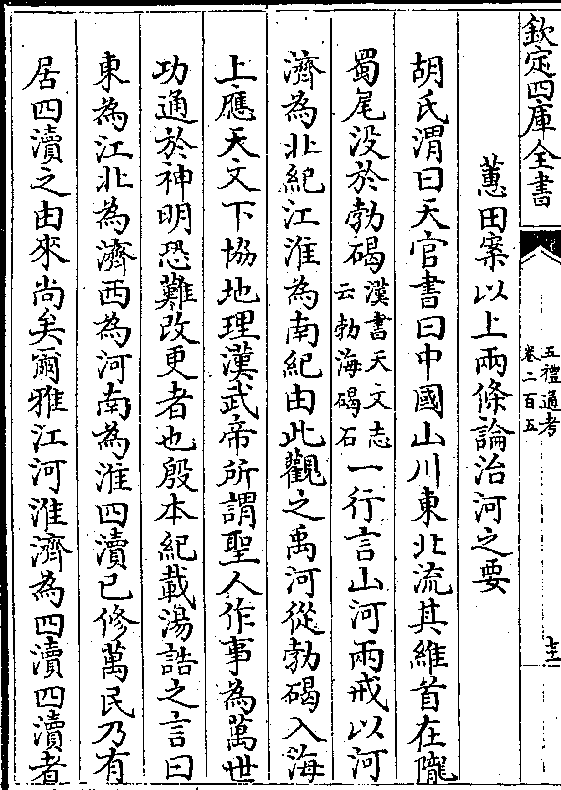 欽定四庫全書
五禮通考
卷二百五
十二
蕙田案以上兩條論治河之要
胡氏渭曰天官書曰中國山川東北流其維首在隴
蜀尾沒於勃碣
漢書天文志
云勃海碣石
一行言山河兩戒以河
濟為北紀江淮為南紀由此觀之禹河從勃碣入海
上應天文下協地理漢武帝所謂聖人作事為萬世
功通於神明恐難改更者也殷本紀載湯誥之言曰
東為江北為濟西為河南為淮四瀆已修萬民乃有
居四瀆之由來尚矣爾雅江河淮濟為四瀆四瀆者